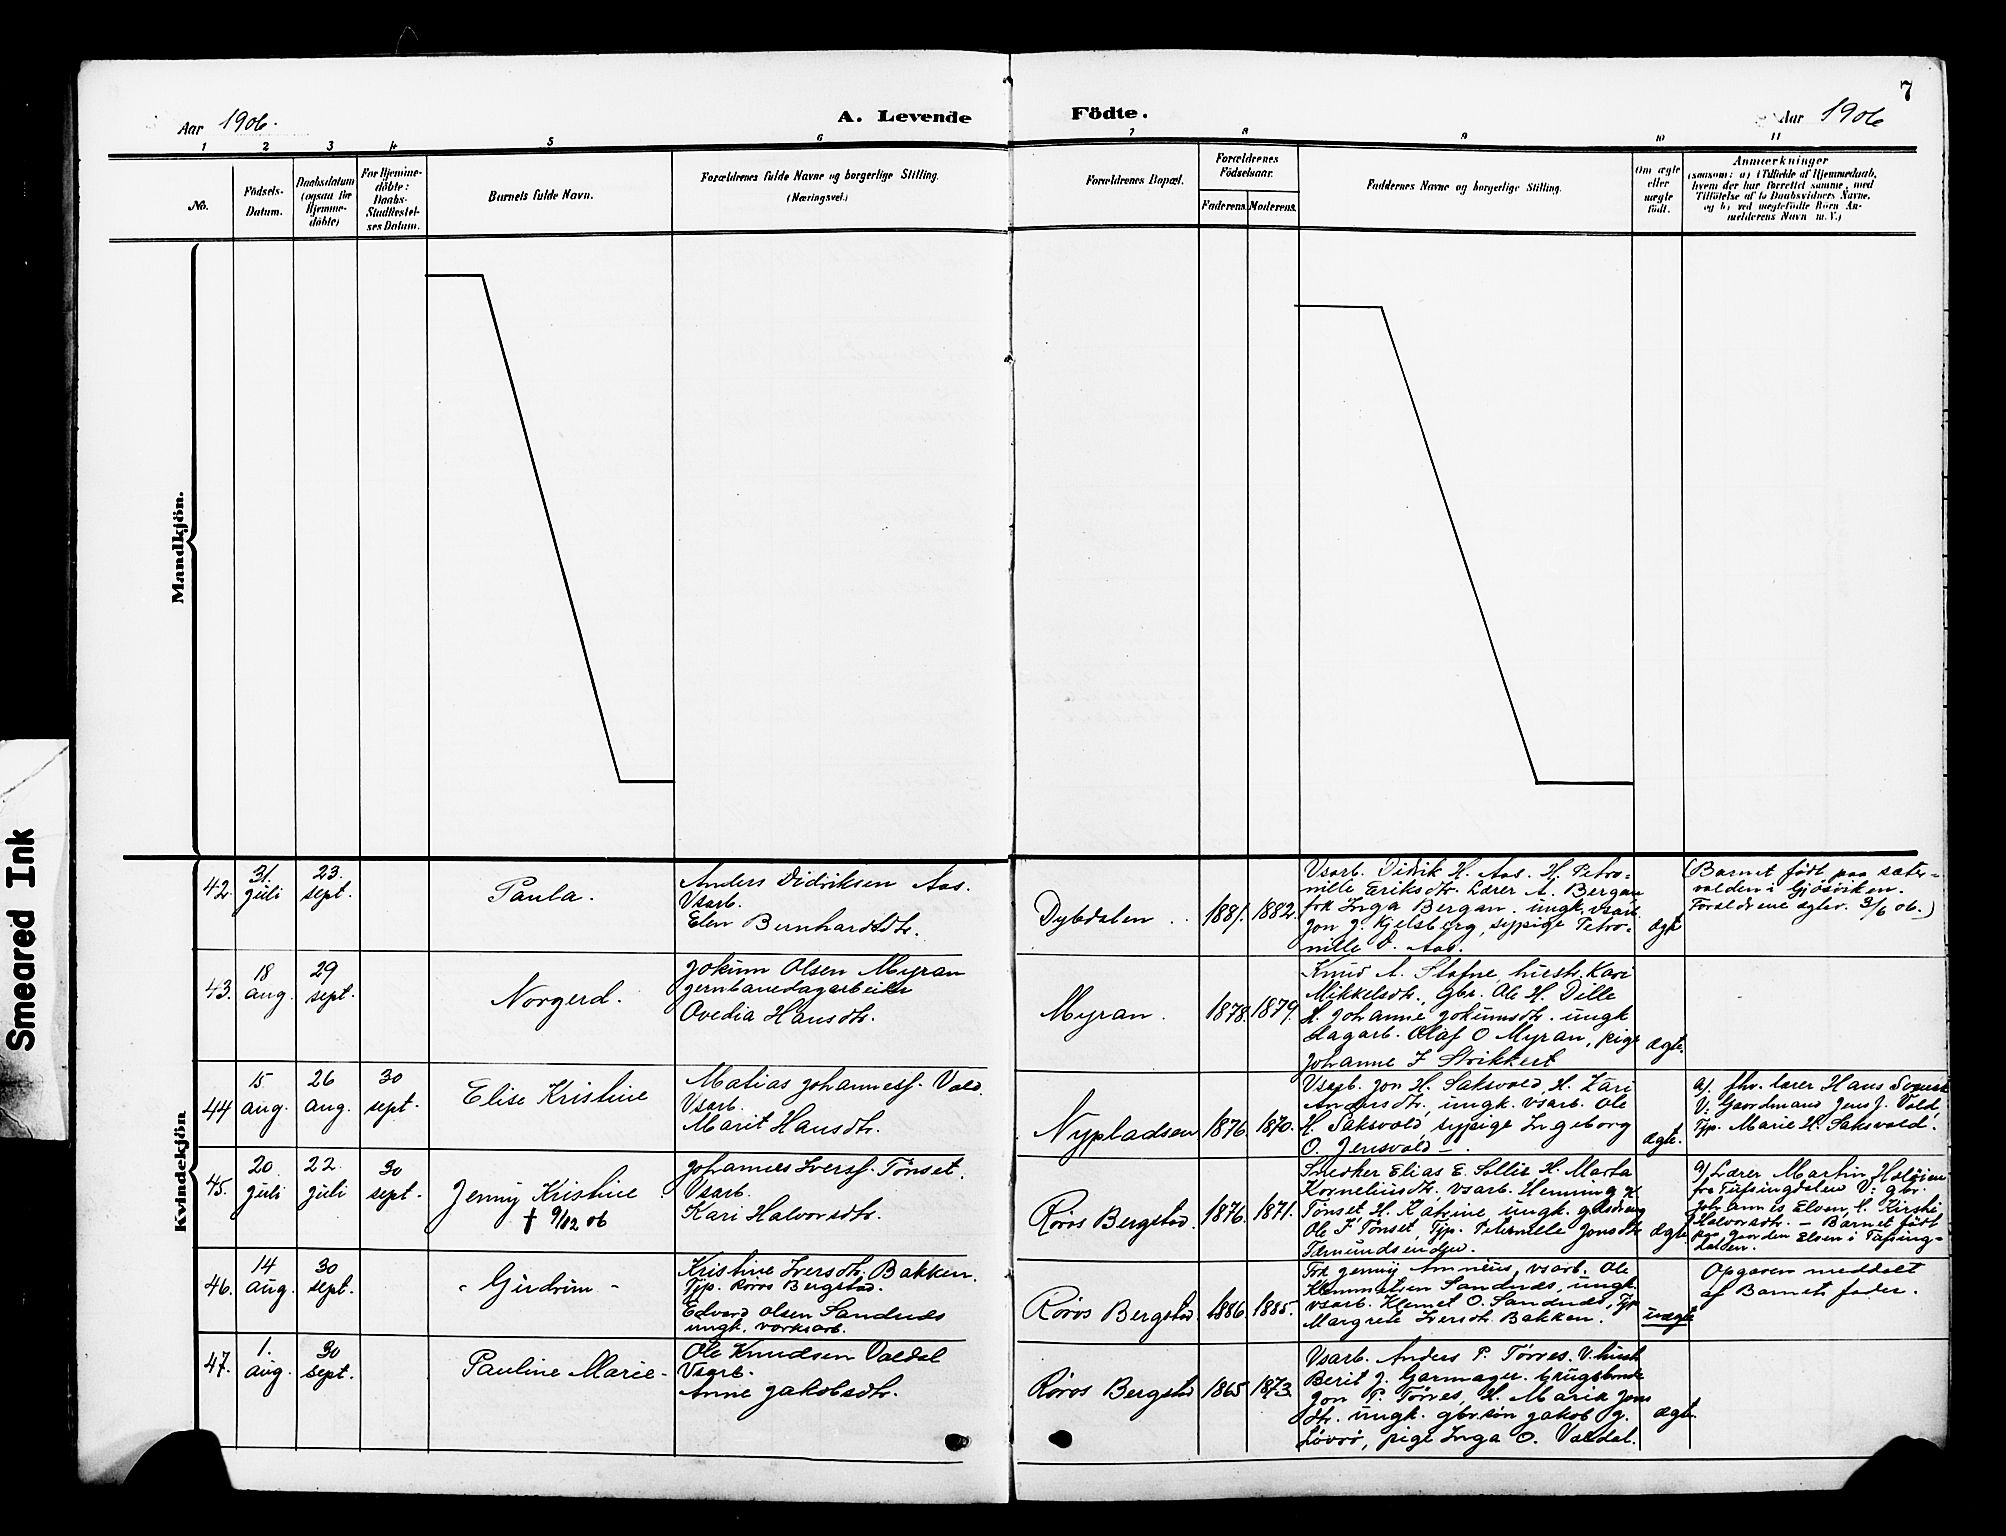 7
Aar 1906.
A. Levende
Födte.
Aar 1906
1 2 3 4 5 6 7 8 9 10 11
No.
Födsels-
Datum.
Daabsdatum
(ogsaa for
Hjemme-
döbte)
For Hjemme-
döbte:
Daabs-
Stadfæstel-
ses Datum.
Barnets fulde Navn.
Forældrenes fulde Navne og borgerlige Stilling.
(Næringsvei.)
Forældrenes Bopæl.
Forældrenes
Födselsaar.
Faderens. Moderens.
Faddernes Navne og borgerlige Stilling.
Om ægte
eller
uægte
födt.
Anmærkninger
(saasom: a) i Tilfælde af Hjemmedaab,
hvem der har forrettet samme, med
Tilföielse af to Daabsvidners Navne,
og b) ved uægtefödte Börn An-
melderens Navn m. V.)
Mandkjön.
Kvindekjön
42.
31.
juli
23.
sept.
Paula.
Anders Didriksen Aas.
Vsarb.
Elen Bernhardsdtr.
Dybdalen.
1881.
1882
Vsarb. Didrik H. Aas. H. Petro-
nille Eriksdtr. Lærer A. Bergan
frk Inga Bergan. ungk. vsarb.
Jon J. Kjelsberg, sypige Petro-
nille D. Aas.
ægt
(Barnet født paa sæter-
volden i Gjøsviken.
Forældrene ægtev. 3/6 06.)
43.
18
aug.
29
sept.
Norgerd.
Jokum Olsen Myran
jernbanedagarbeider
Ovedia Hansdtr.
Myran.
1878.
1879.
Knud A. Stofne, hustr. Kari
Mikkelsdtr., gbr. Ole H. Dille
H. Johanne Jokumsdtr. ungk
dagarb. Olaf O Myran, pige
Johanne J Strikkert
ægte.
44
15
aug.
26
aug.
30
sept.
Elise Kristine
Matias Johannesf. Vold.
Vsarb.
Marit Hansdtr.
Nypladsen
1876.
1870.
Vsarb. Jon H. Saksvold, H. Kari
Andersdtr., ungk. vsarb. Ole
H. Saksvold sypige Ingeborg
O. Jensvold.
ægte.
a/. fhv. lærer Hans
V: Gaardmand Jens J. Vold,
Tjp. Marie H. Saksvold.
45.
20
juli
22.
juli
30
sept.
Jenny Kristine
† 9/12 06
Johannes Iversf. Tønset.
Vsarb.
Kari Halvorsdtr.
Røros Bergstad.
1876.
1871.
Snedker Elias E. Sollie H. Marta
Korneliusdtr., vsarb. Henning
Tønset H. Katrine ungk. gaardsdreng
Ole I Tønset, Tjp. Peternelle Jonsdtr
Fæmundsenden.
ægte.
a/ Lærer Martin
fra Tufsingdalen V: gbr.
Johannes Elven,
Halvorsdtr. – Barnet født
paa gaarden Elven i Tufsing-
dalen.
46.
14
aug.
30
sept.
- Gudrun -
Kristine Iversdtr. Bakken.
Tjp. Røros Bergstad.
Edvard Olsen Sandnes
ungk. verksarb.
Røros Bergstad.
1886
1885.
Frk Jenny Amneus, vsarb. Ole
Klemmetsen Sandnes, ungk.
vsarb. Klemet O. Sandnes, Tjp
Margrete Iversdtr. Bakken.
uægte
Opgaven meddelt
af Barnets fader.
47.
1.
aug.
30
sept.
Pauline Marie.
Ole Knudsen Valdal
Vsarb.
Anne Jakobsdtr.
Røros Bergstad
1865
1873.
Vsarb. Anders P. Tørres. V. hust
Berit J. Garmager. brugsbonde
Jon P. Tørres, H. Marie Jons
dtr. ungk. gbr.søn Jakob J.
Løvrø, pige Inga O. Valdal.
ægte.
Smeared Ink